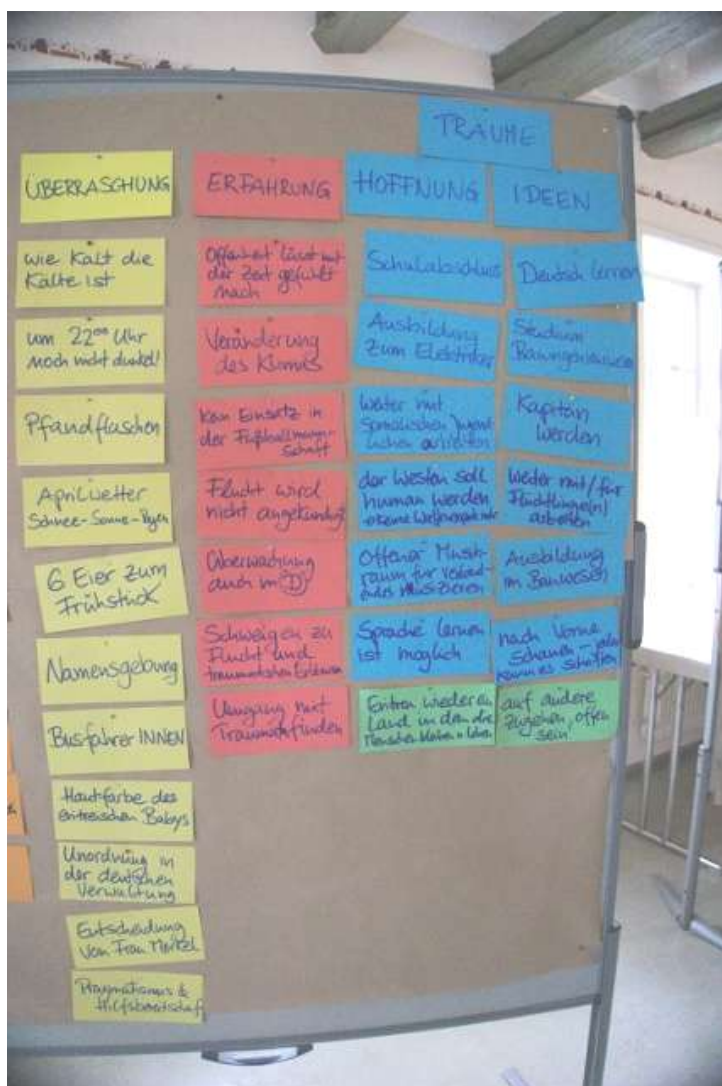 TRÄUME
ÜBERRASCHUNG
wie kalt die
Kälte ist
um 22⁰⁰ Uhr
noch nicht dunkel!
Pfandflaschen
Aprilwetter
Schnee-Sonne-Regen
6 Eier zum
Frühstück
Namensgebung
BusfahrerINNEN
Hautfarbe des
eritreischen Babys
Unordnung in
der deutschen
Verwaltung
Entscheidung
von Frau Merkel
Pragmatismus &
Hilfsbereitschaf
ERFAHRUNG
Offenheit lässt mit
der Zeit gefühlt
nach
Veränderung
des Klimas
Kein Einsatz in
der Fußballmann-
schaft
Flucht wird
nicht angekündigt
Überwachung
auch in D
Schweigen zu
Flucht und
traumatischen Erlebnissen
Umgang mit
Traumata finden
HOFFNUNG
Schulabschluss
Ausbildung
zum Elektriker
weiter mit
somalischen Jugend
lichen arbeiten
der Westen soll
human werden
Offener Musik-
raum für
Musizieren
Sprache lernen
ist möglich
Eritrea wieder ein
Land in dem die
Menschen bleiben
IDEEN
Deutsch lernen
Studium
Bauingenieurwesen
Kapitän
werden
weiter mit/für
Flüchtlinge(n)
arbeiten
Ausbildung
im Bauwesen
nach vorne
schauen - jeder
kann es schaffen
auf andere
zugehen, offen
sein